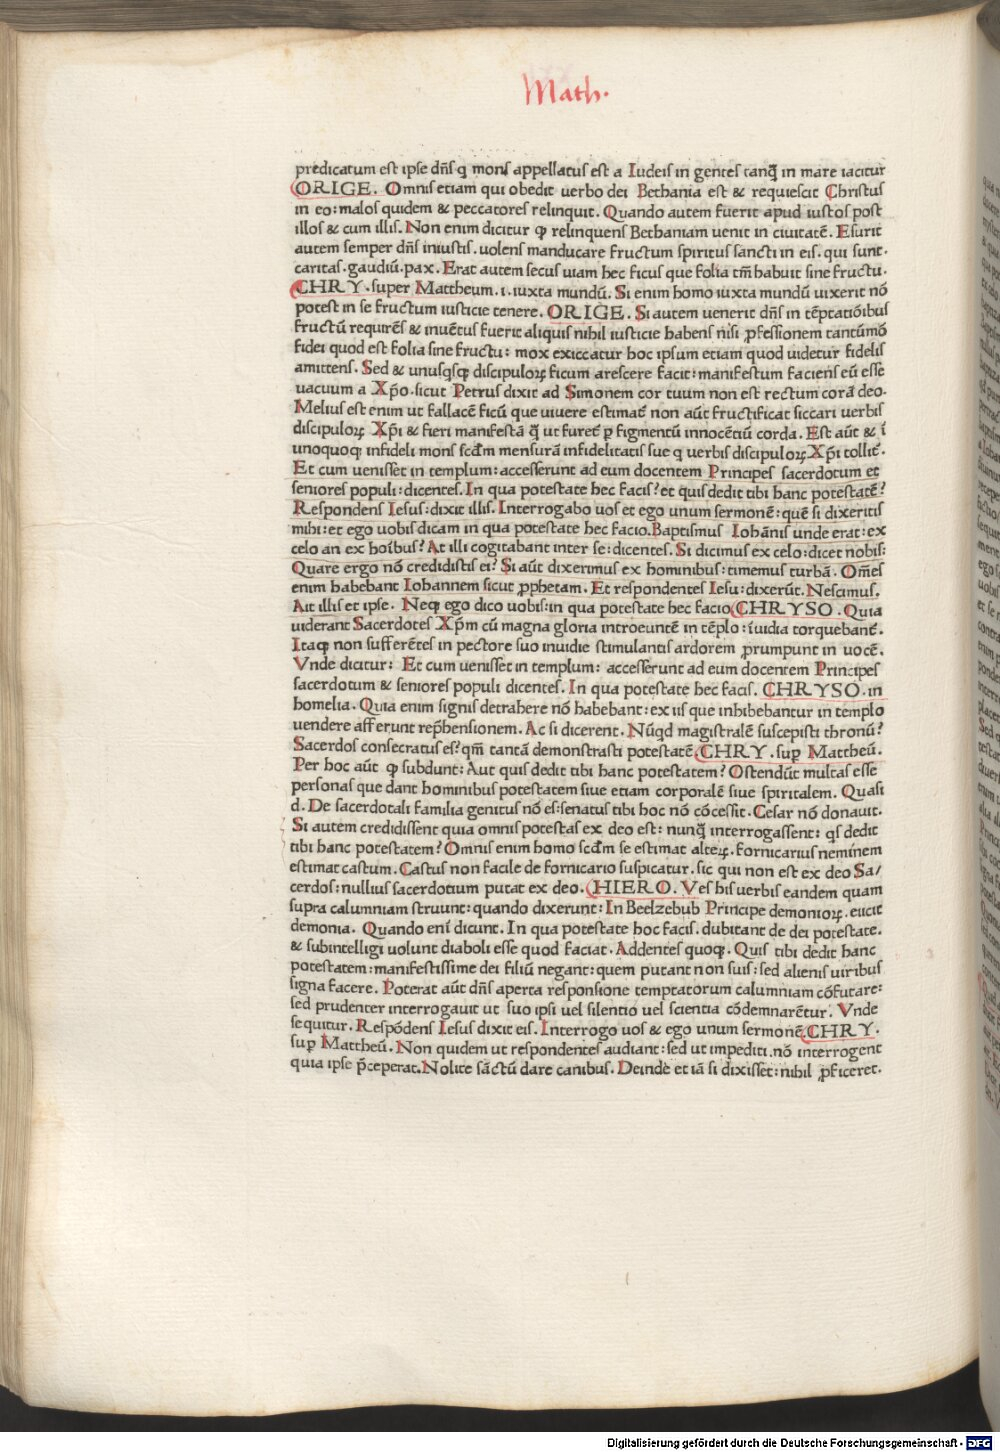 Math.
predicatum est ipse dñs q mons appellatus est a Iudeis in gentes tanq̃ in mare iacitur
ORIGE. Omnis etiam qui obedit uerbo dei Bethania est & requiescit Christus
in eo: malos quidem & peccatores relinquit. Quando autem fuerit apud iustos post
illos & cum illis. Non enim dicitur ꝙ relinquens Bethaniam uenit in ciuitatē. Esurit
autem semper dñs iniustis. uolens manducare fructum spiritus sancti in eis. qui sunt.
caritas. gaudiū. pax. Erat autem secus uiam hec ficus que folia tm̄ habuit sine fructu.
CHRY. super Mattheum. i. iuxta mundū. Si enim homo iuxta mundū uixerit nō
potest in se fructum iusticie tenere. ORIGE. Si autem uenerit dñs in tēptatiōibus
fructū requirēs & inuētus fuerit aliquis nihil iusticie habens nisi ꝓfessionem tantūmō
fidei quod est folia sine fructu: mox exiccatur hoc ipsum etiam quod uidetur fidelis
amittens. Sed & unusqsꝗ discipuloꝝ ficum arescere facit: manifestum faciens eū esse
uacuum a Xp̄o. sicut Petrus dixit ad Simonem cor tuum non est rectum corā deo.
Melius est enim ut fallacē ficū que uiuere estimat̄ non aūt fructificat siccari uerbis
discipuloꝝ Xp̄i & fieri manifestā q̃ ut furet̄ ꝑ figmentū innocētiū corda. Est aūt & ī
unoquoꝗ infideli mons scđm mensurā infidelitatis sue q uerbis discipuloꝝ Xp̄i tollit̄.
Et cum uenisset in templum: accesserunt ad eum docentem Principes sacerdotum et
seniores populi: dicentes. In qua potestate hec facis? et quis dedit tibi hanc potestatē?
Respondens Iesus: dixit illis. Interrogabo uos et ego unum sermonē: quē si dixeritis
mihi: et ego uobis dicam in qua potestate hec facio. Baptismus Iohānis unde erat: ex
celo an ex hoībus? At illi cogitabant inter se: dicentes. Si dicimus ex celo: dicet nobis:
Quare ergo nō credidistis ei? Si aūt dixerimus ex hominibus: timemus turbā. Oms̄
enim habebant Iohannem sicut ꝓphetam. Et respondentes Iesu: dixerūt. Nescimus.
Ait illis et ipse. Neꝗ ego dico uobis: in qua potestate hec facio CHRYSO. Quia
uiderant Sacerdotes Xp̄m cū magna gloria introeuntē in tēplo: īuidia torquebant̄.
Itaꝗ non sufferētes in pectore suo inuidie stimulantis ardorem ꝓrumpunt in uocē.
Vnde dicitur: Et cum uenisset in templum: accesserunt ad eum docentem Principes
sacerdotum & seniores populi dicentes. In qua potestate hec facis. CHRYSO. in
homelia. Quia enim signis detrahere nō habebant: ex iis que inhibebantur in templo
uendere afferunt rep̄hensionem. Ac si dicerent. Nūqd magistralē suscepisti thronū?
Sacerdos consecratus es? qm̄ tantā demonstrasti potestatē CHRY. suꝑ Mattheū.
Per hoc aūt ꝙ subdunt: Aut quis dedit tibi hanc potestatem? Ostendūt multas esse
personas que dant hominibus potestatem siue etiam corporalē siue spiritalem. Quasi
d. De sacerdotali familia genitus nō es: senatus tibi hoc nō cōcessit. Cesar nō donauit.
Si autem credidissent quia omnis potestas ex deo est: nunq̃ interrogassent: qs dedit
tibi hanc potestatem? Omnis enim homo scđm se estimat alteꝝ. fornicarius neminem
estimat castum. Castus non facile de fornicario suspicatur. sic qui non est ex deo Sa/
cerdos: nullius sacerdotium putat ex deo. HIERO. Ves his uerbis eandem quam
supra calumniam struunt: quando dixerunt: In Beelzebub Principe demonioꝝ. eiicit
demonia. Quando enī dicunt. In qua potestate hoc facis. dubitant de dei potestate.
& subintelligi uolunt diaboli esse quod faciat. Addentes quoꝗ. Quis tibi dedit hanc
potestatem: manifestissime dei filiū negant: quem putant non suis: sed alienis uiribus
signa facere. Poterat aūt dñs aperta responsione temptatorum calumniam cōfutare:
sed prudenter interrogauit ut suo ipsi uel silentio uel scientia cōdemnarētur. Vnde
sequitur. Respōdens Iesus dixit eis. Interrogo uos & ego unum sermonē CHRY.
suꝑ Mattheū. Non quidem ut respondentes audiant: sed ut impediti. nō interrogent
quia ipse p̄ceperat. Nolite sāctū dare canibus. Deinde et iā si dixisset: nihil ꝓficeret.
Digitalisierung gefördert durch die Deutsche Forschungsgemeinschaft - DFG